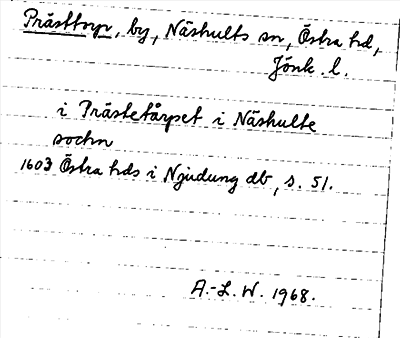 Prästtorp, by, Näshults sn, Östra hd,
Jönk. l.
i Prästetårpet i Näshulte
sochn
1603 Östra hds i Njudung db, s. 51.
A.-L. W. 1968.